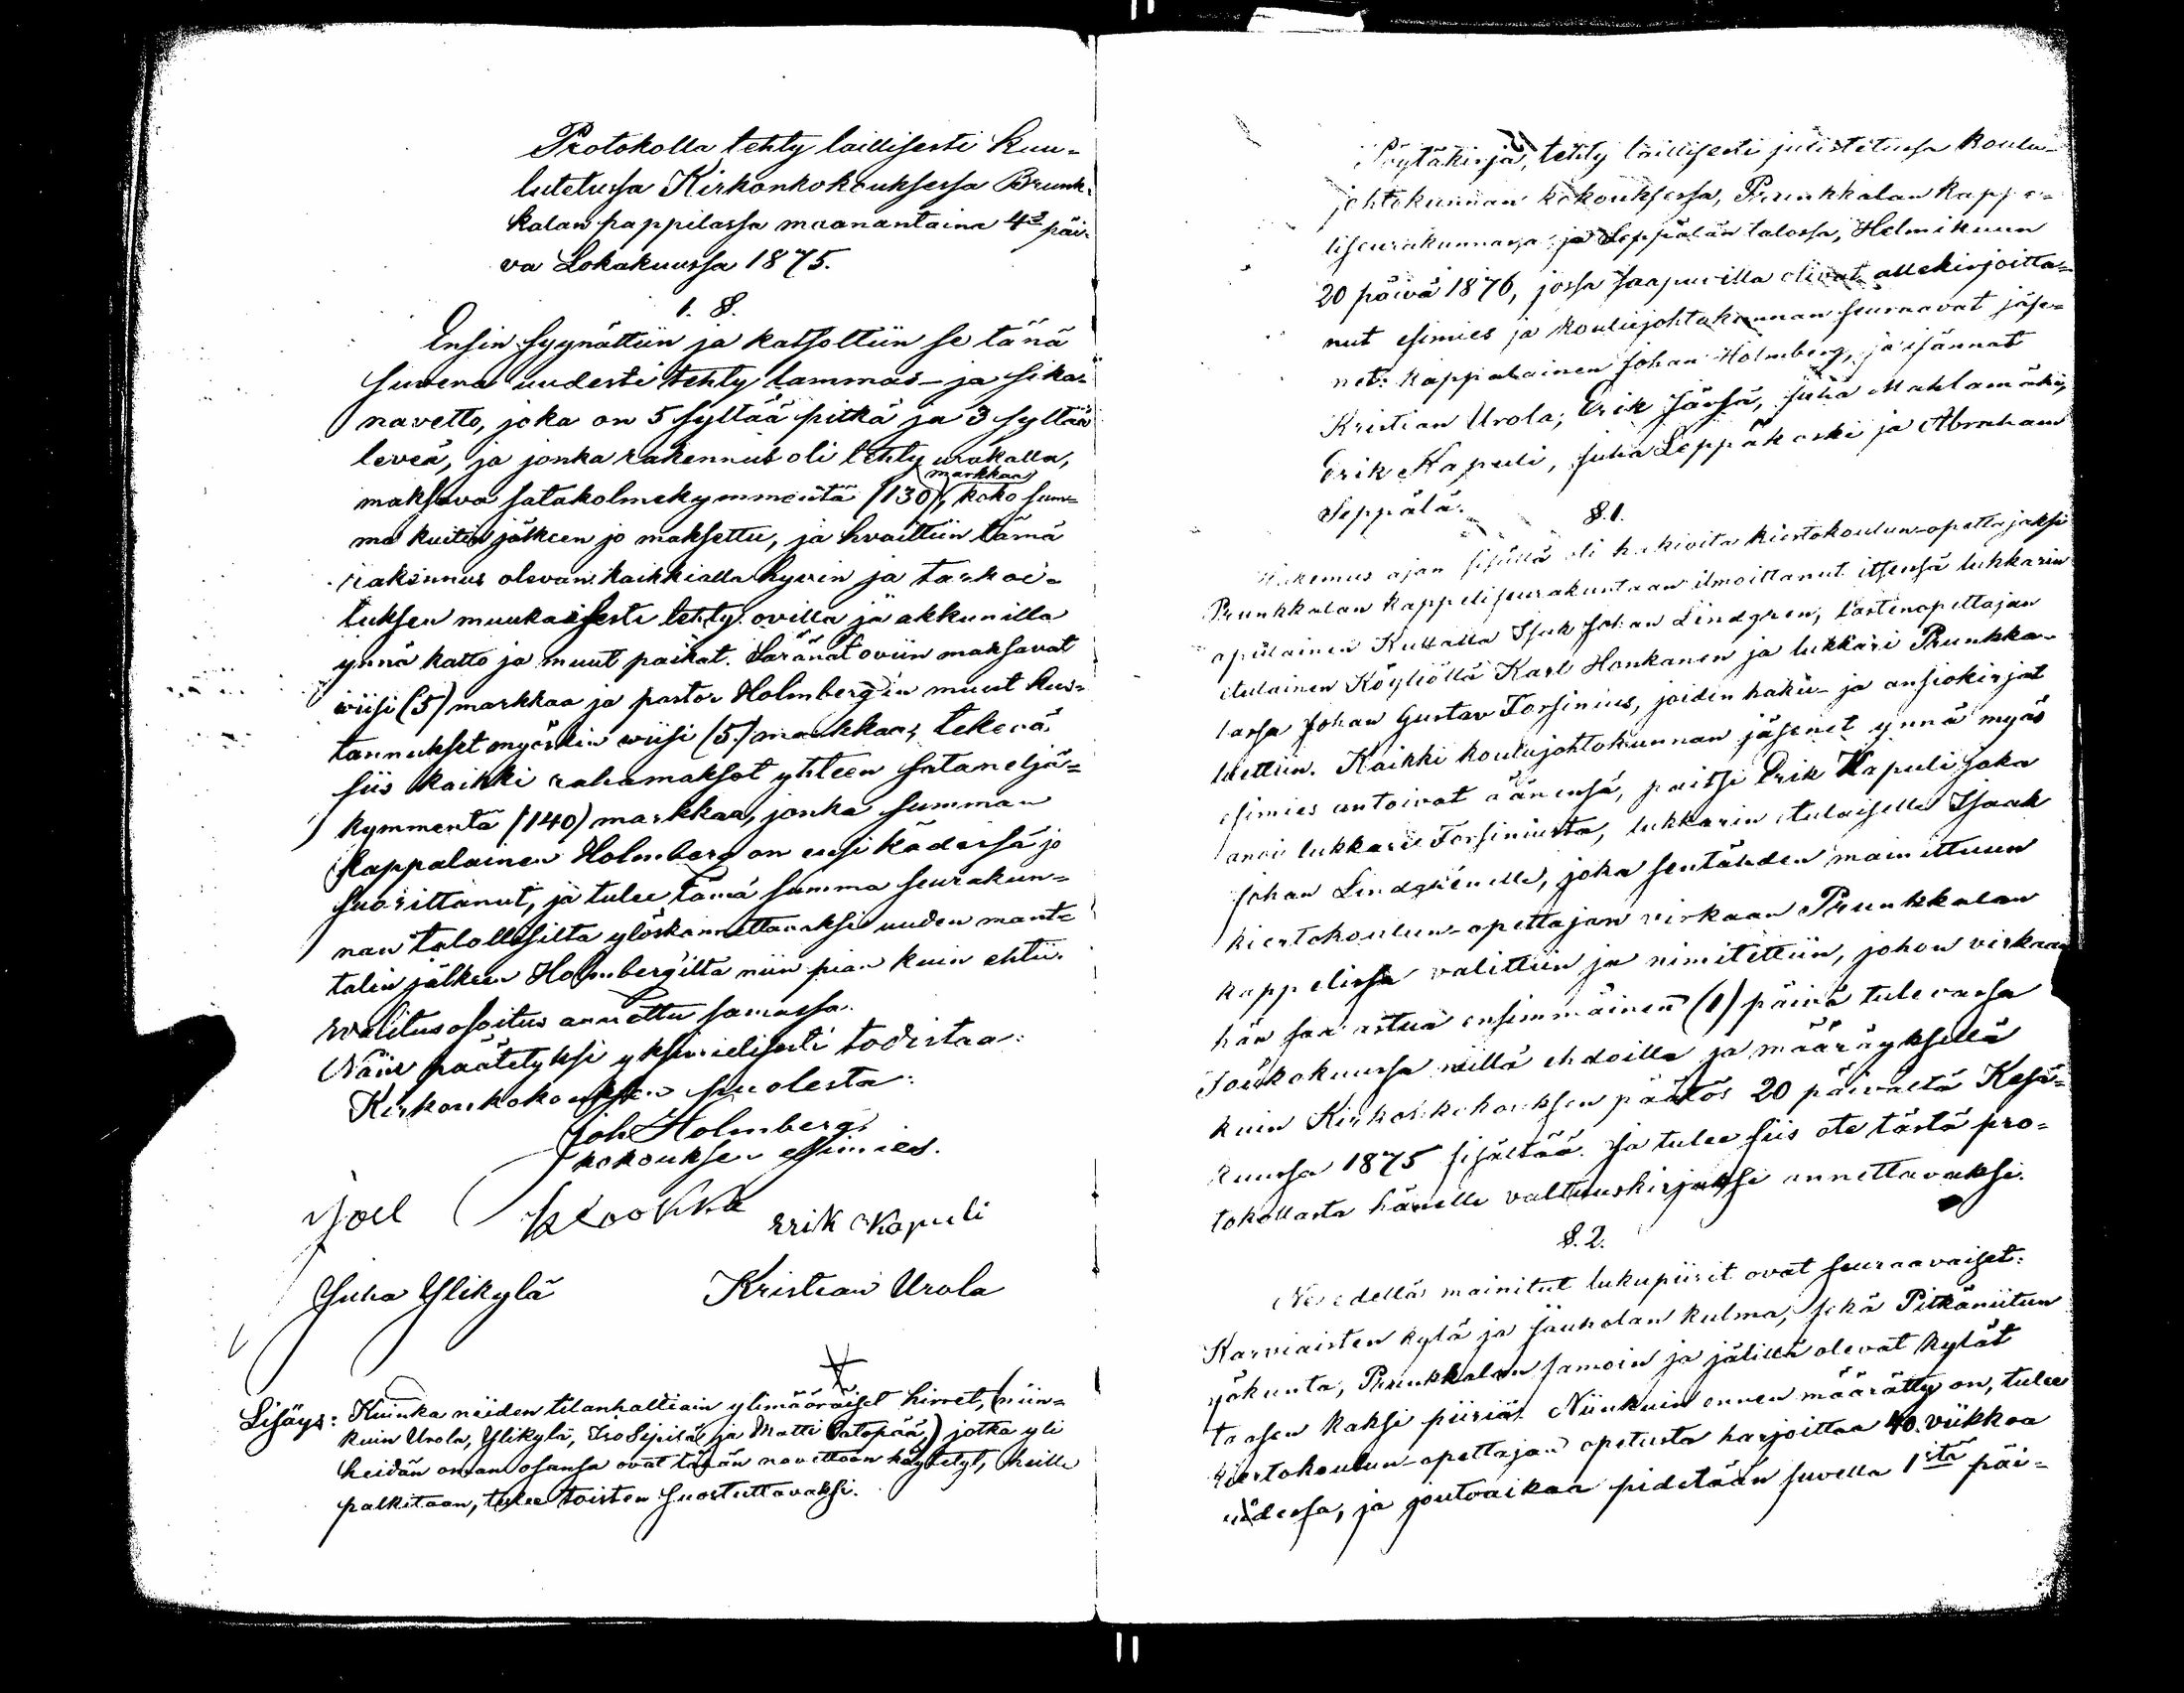 Protokolla tehty laillisesti kuu-
lutetussa Kirkonkokouksessa Brunk-
kalan pappilassa maanantaina 4 päi-
vä Lokakuussa 1875.
1. §.
Ensin syynättiin ja katsottiin se tänä
suvena uudesti tehty lammas- ja sika-
navetto, joka on 5 syltää pitkä ja 3 syltää
leveä, ja jonka rakennus oli tehty urakalla,
markkaa
maksava satakolmekymmentä (130), koko sum-
ma kuitin jälkeen jo maksettu, ja hvaittiin tämä
rakennus olevan kaikkialla hyvin ja tarkoi-
tuksen muukaisesti tehty ovilla ja akkunilla
ynnä katto ja muut paikat. Saranat oviin maksavat
viisi (5) markkaa ja pastor Holmberg'in muut kus-
tannukset myöskin viisi (5) markkaa, tekevä
siis kaikki rahamaksot yhteen sataneljä-
kymmentä (140) markkaa, jonka summan
Kappalainen Holmberg on ensi kädessä jo
suorittanut, ja tulee tämä summa seurakun-
nan talollisilta ylöskannettavaksi uuden mant-
talin jälkeen Holmberg'iltä niin pian kuin ehtii.
Walitusosoitus annettu samassa.
Näin päätetyksi yksimielisesti todistaa:
Kirkonkokouksen puolesta:
Joh Holmberg.
kokouksen esimies.
Joel Erik Kapuli
Juha Ylikylä Kristian Urola
Lisäys: Kuinka neiden tilanhaltiain ylimääräiset hirret, (niin-
kuin Urola, Ylikylä, Iso Sipilä ja Matti Latopää,) jotka yli
heidän oman osansa ovat tähän navettoon käytetyt, heille
palkitaan, tulee toisten suostuttavaksi.
Pöytäkirja, tehty laillisesti julistetussa koulu-
johtokunnan kokouksessa, Prunkkalan kappe-
liseurakunnassa ja Seppälän talossa, Helmikuun
20 päivä 1876, jossa saapuvilla olivat allekirjoitta-
nut esimies ja koulujohtokunnan seuraavat jäse-
net: kappalainen Johan Holmberg, ja isännät
Kristian Urola, Erik Jänsä, Juha Mahlamäki,
Erik Kapuli, Juha Leppäkoski ja Abraham
Seppälä.
§.1.
Hakemus ajan sisällä oli hakivita kiertokoulun-opettajaksi
Prunkkalan kappeliseurakuntaan ilmoittanut itsensä lukkarin
apulainen Johan Lindgren, lastenopettajan
Köyliöllä Karl Honkanen ja lukkari Prunkka-
lassa Johan Gustav Forsinius, joiden haku- ja ansiokirjat
luettiin. Kaikki koulujohtokunnan jäsenet ynnä myös
esimies antoivat äänensä, paitsi Erik Kapuli joka
anoi lukkari Forsiniusta, lukkarin Isaak
Johan Lindgrénille, joka sentähden mainittuun
kiertokoulun-opettajan virkaan Prunkkalan
kappelissa valittiin ja nimitettiin, johon virkaan
hän saa astua ensimmäinen (1) päivä tulevassa
Toukokuussa niillä ehdoilla ja määräyksillä
kuin Kirkonkokouksen päätös 20 päivältä Kesä-
kuussa 1875 sisältää. Ja tulee siis ote tästä pro-
tokollasta hänelle valtuuskirjaksi annettavaksi.
§.2.
Ne edellä mainitut lukupiirit ovat seuraavaiset:
Karviaisten kylä ja kulma, sekä Pitkäniitun
yökunta, Prunkkalan samoin ja jälillä olevat kylät
taasen kaksi piiriä. Niinkuin ennen määrätty on, tulee
kiertokoulun-opettajan opetusta harjoittaa 40 viikkoa
vuodessa, ja joutoaikaa pidetään suvella 1stä päi-